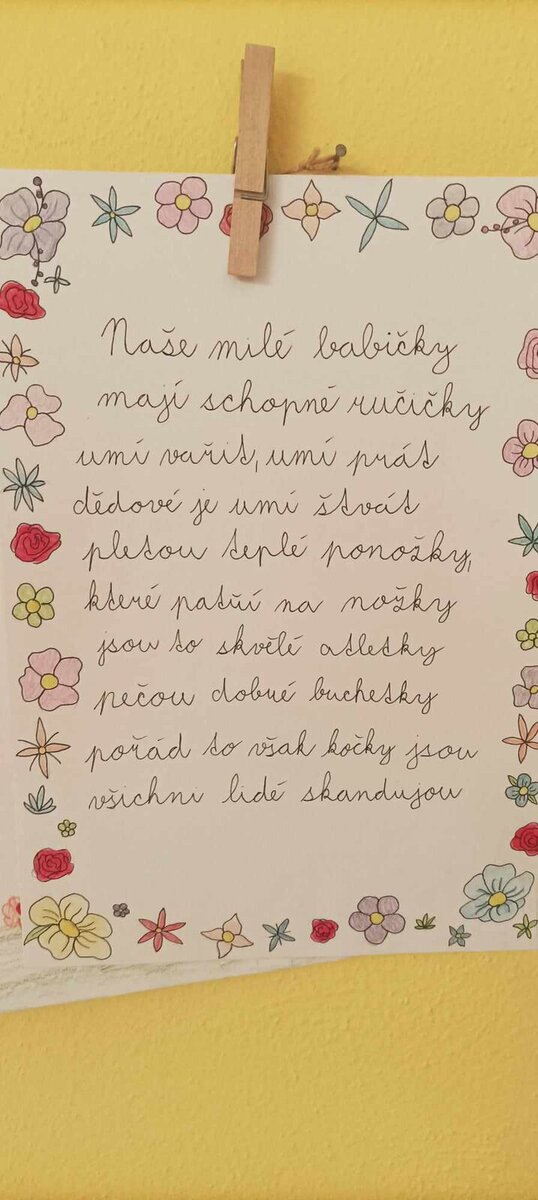 Naše milé babičky
mají schopné ručičky
umí vařit, umí prát
dědové je umí štvát
pletou teplé ponožky,
které patří na nožky
jsou to skvělé atletky
pečou dobré buchetky
pořád to však kočky jsou
všichni lidé skandujou